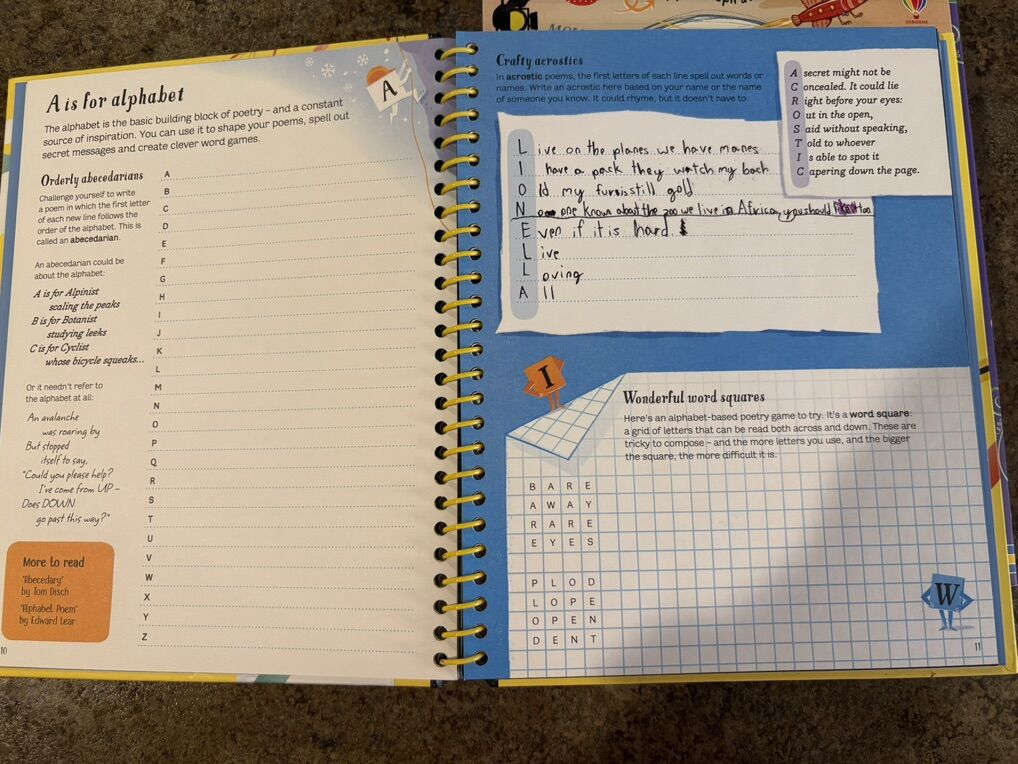 USBORNE
A is for alphabet
The alphabet is the basic building block of poetry – and a constant
source of inspiration. You can use it to shape your poems, spell out
secret messages and create clever word games.
A
Orderly abecedarians
Challenge yourself to write
a poem in which the first letter
of each new line follows the
order of the alphabet. This is
called an abecedarian.
An abecedarian could be
about the alphabet:
A is for Alpinist
scaling the peaks
B is for Botanist
studying leeks
C is for Cyclist
whose bicycle squeaks...
Or it needn't refer to
the alphabet at all:
An avalanche
was roaring by
But stopped
itself to say,
"Could you please help?
I've come from UP –
Does DOWN
go past this way?"
More to read
"Abecedary"
by Tom Disch
"Alphabet Poem"
by Edward Lear
10
A
B
C
D
E
F
G
H
I
J
K
L
M
N
O
P
Q
R
S
T
U
V
W
X
Y
Z
Crafty acrostics
In acrostic poems, the first letters of each line spell out words or
names. Write an acrostic here based on your name or the name
of someone you know. It could rhyme, but it doesn't have to.
A secret might not be
Concealed. It could lie
Right before your eyes:
Out in the open,
Said without speaking,
Told to whoever
Is able to spot it
Capering down the page.
Live on the planes we have manes
I have a pack they watch my back
Old my fur is still gold
No one knows about the zoo we live in Africa, you should too
Even if it is hard
Live
Loving
All
I
Wonderful word squares
Here's an alphabet-based poetry game to try. It's a word square:
a grid of letters that can be read both across and down. These are
tricky to compose – and the more letters you use, and the bigger
the square, the more difficult it is.
B A R E
A W A Y
R A R E
E Y E S
P L O D
L O P E
O P E N
D E N T
W
11